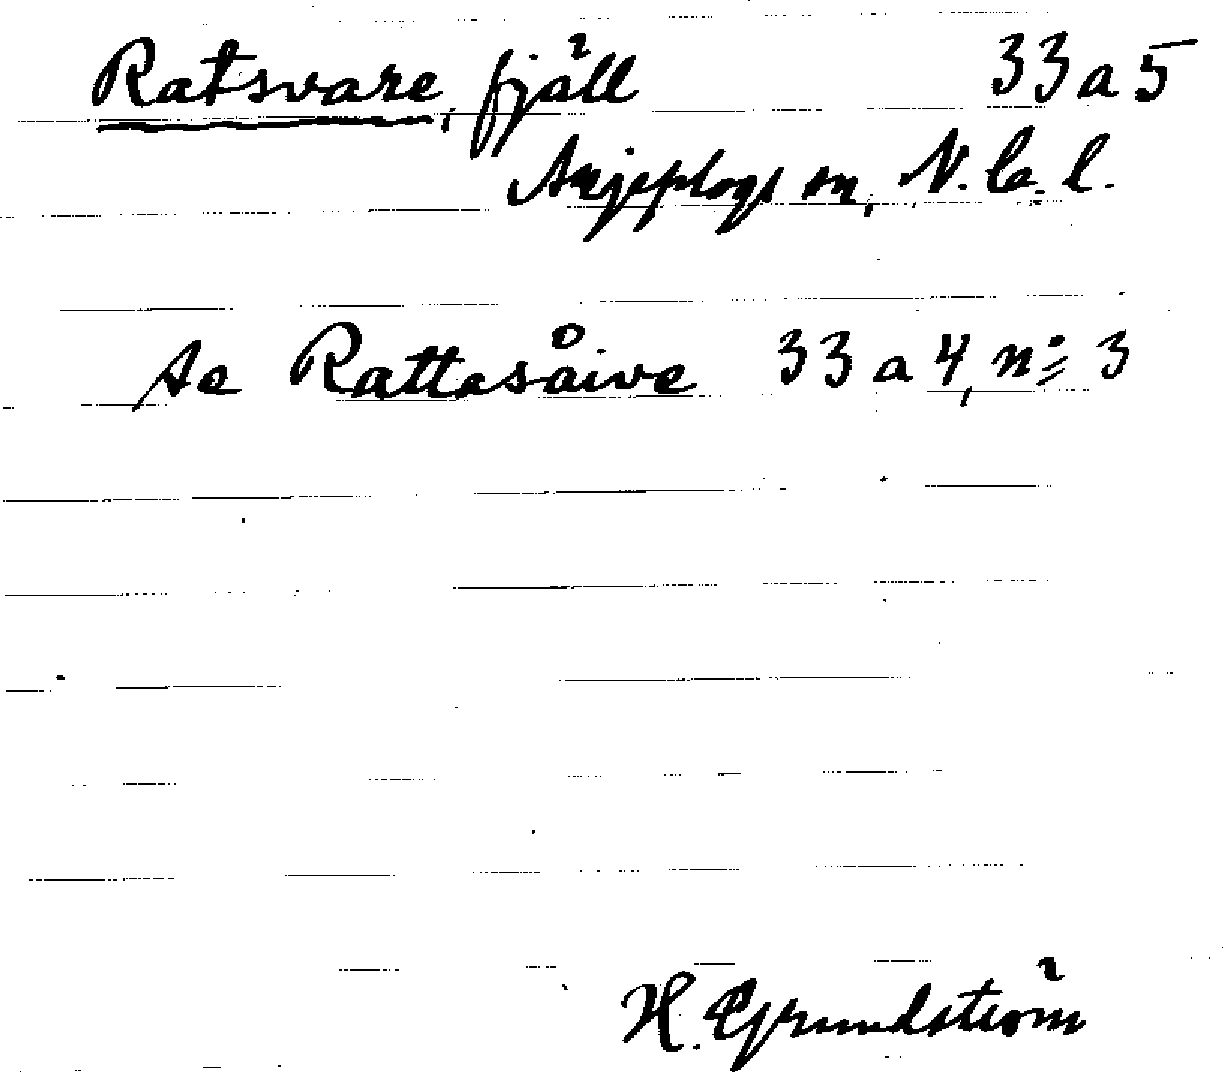 Ratsvare, fjäll 33 a 5
Arjeplogs sn, N. b. l.
Se Rattesåive 33 a 4, nº 3
H. Grundström